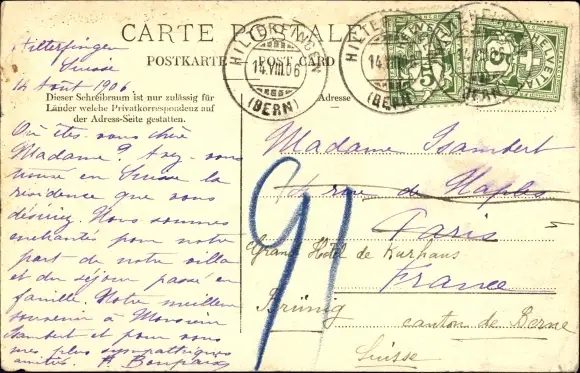 CARTE POSTALE
POSTKARTE POST CARD
Dieser Schreibraum ist nur zulässig für
Länder welche Privatkorrespondenz auf
der Adress-Seite gestatten.
Adresse
HILTERFINGEN
14.VIII.06
(BERN)
HELVETIA
5
Hilterfingen
Suisse
14 Août 1906
Où êtes-vous chère
Madame? Avez-vous
trouvé en Suisse la
résidence que vous
désiriez. Nous sommes
enchantés pour notre
part de notre villa
et du séjour passé en
famille. Notre meilleur
souvenir à Monsieur
Isambert et pour vous
mes plus sympathiques
amitiés.
Madame Isambert
4 rue de Naples
Paris
France
Grand Hôtel de Kurhaus
Brünig
canton de Berne
Suisse
91